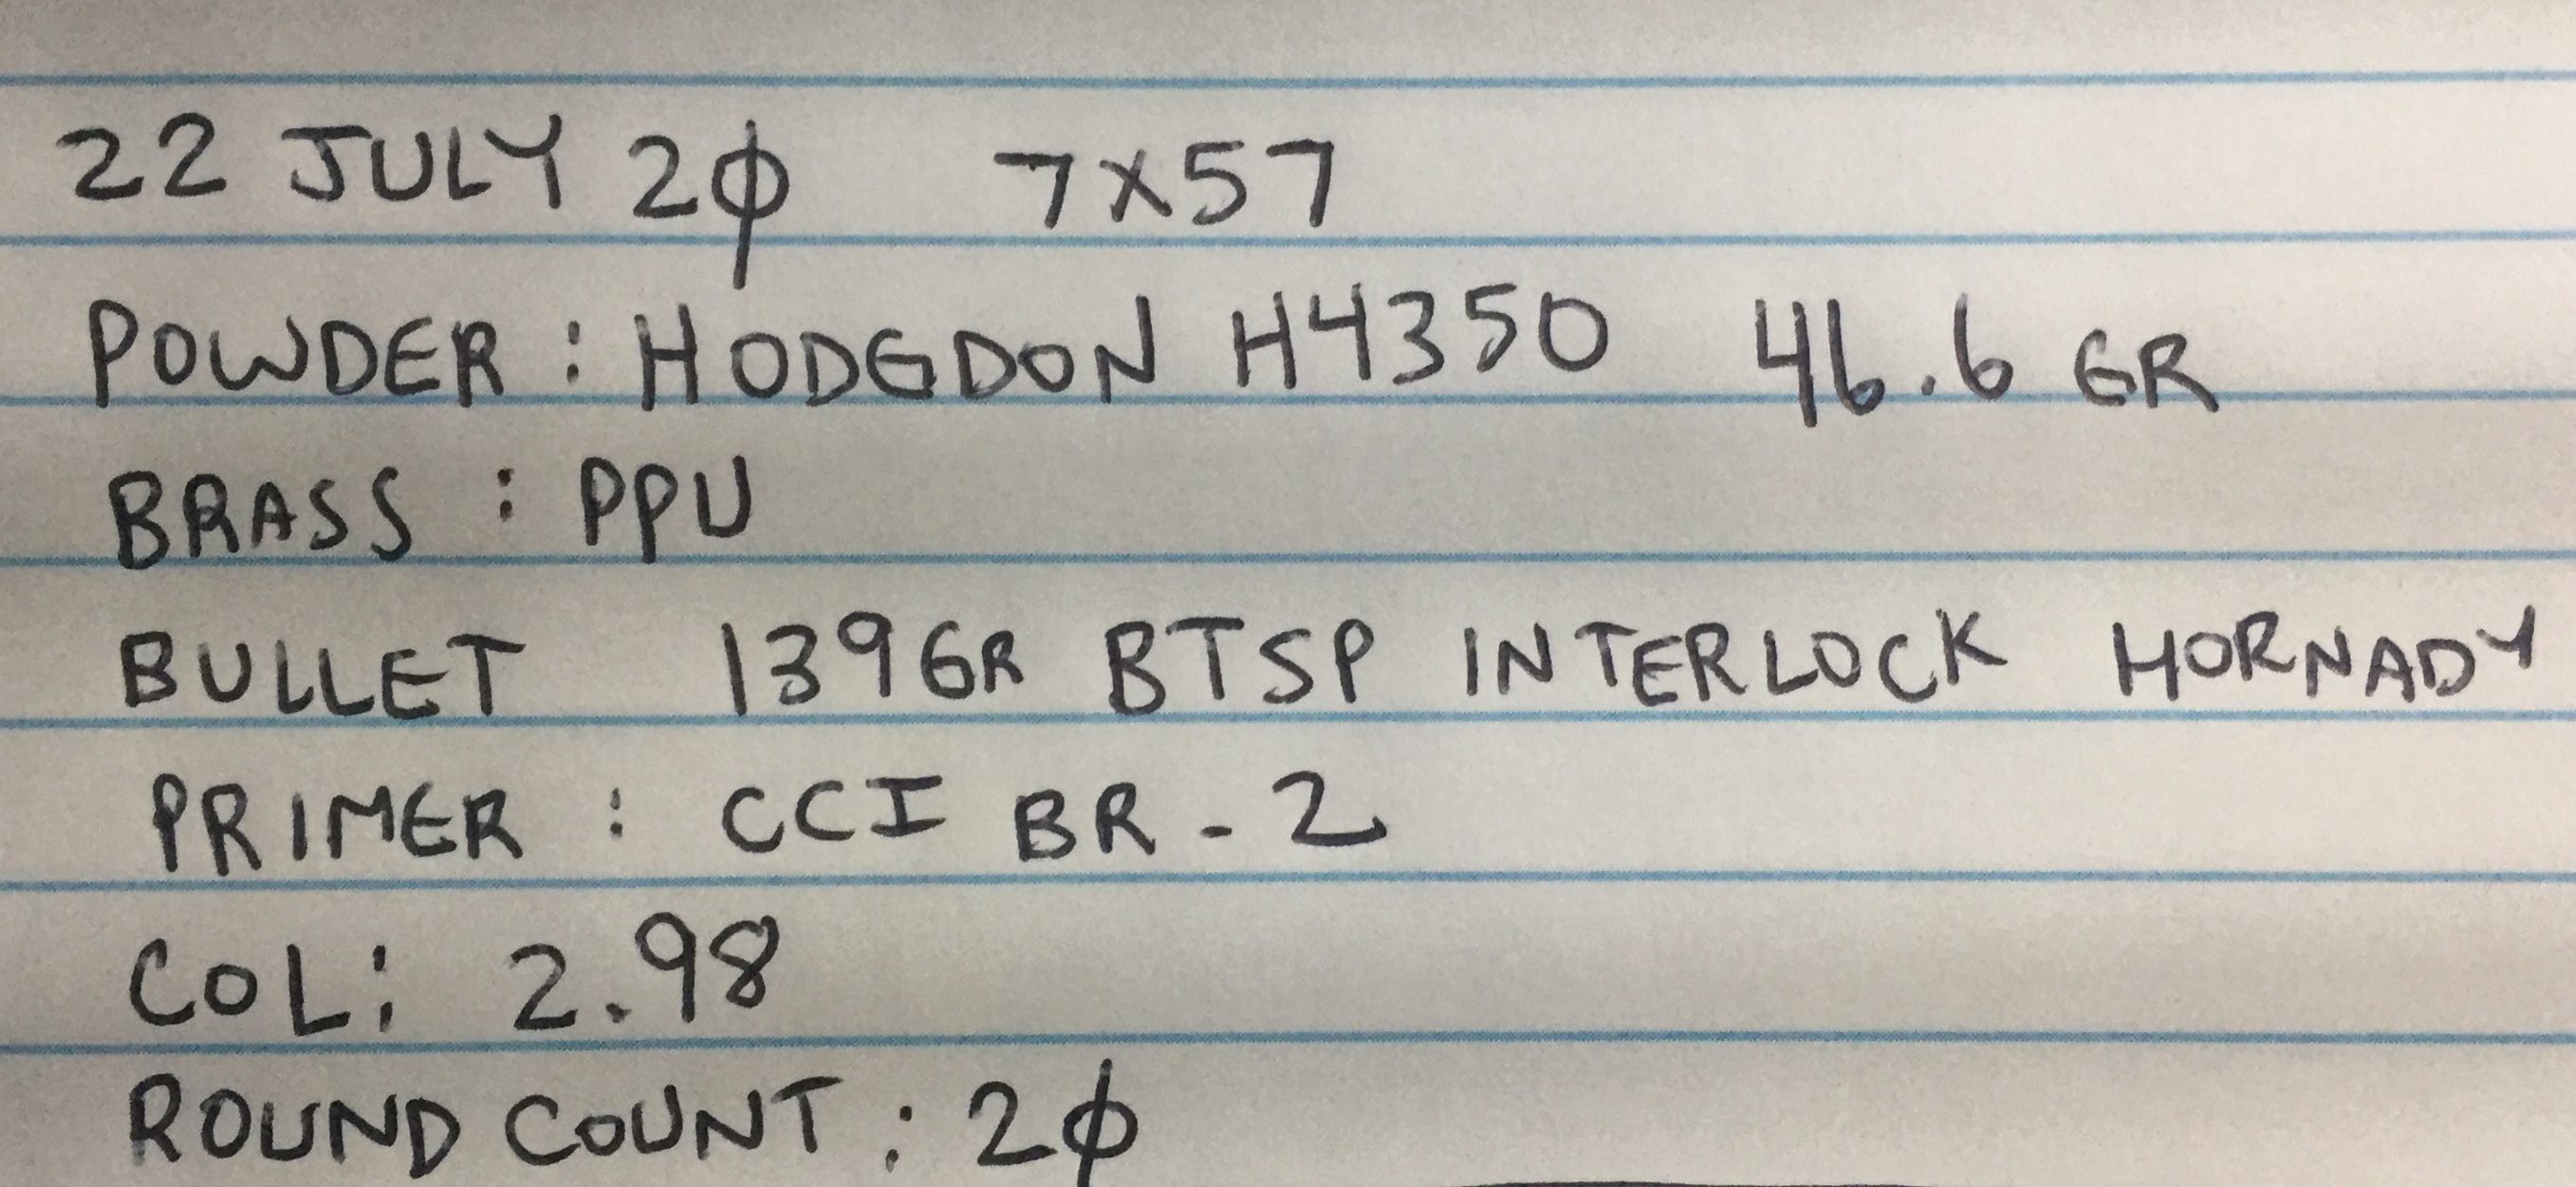 22 JULY 2Ø 7X57
POWDER : HODGDON H4350 46.6 GR
BRASS : PPU
BULLET 139GR BTSP INTERLOCK HORNADY
PRIMER : CCI BR-2
COL: 2.98
ROUND COUNT : 2Ø